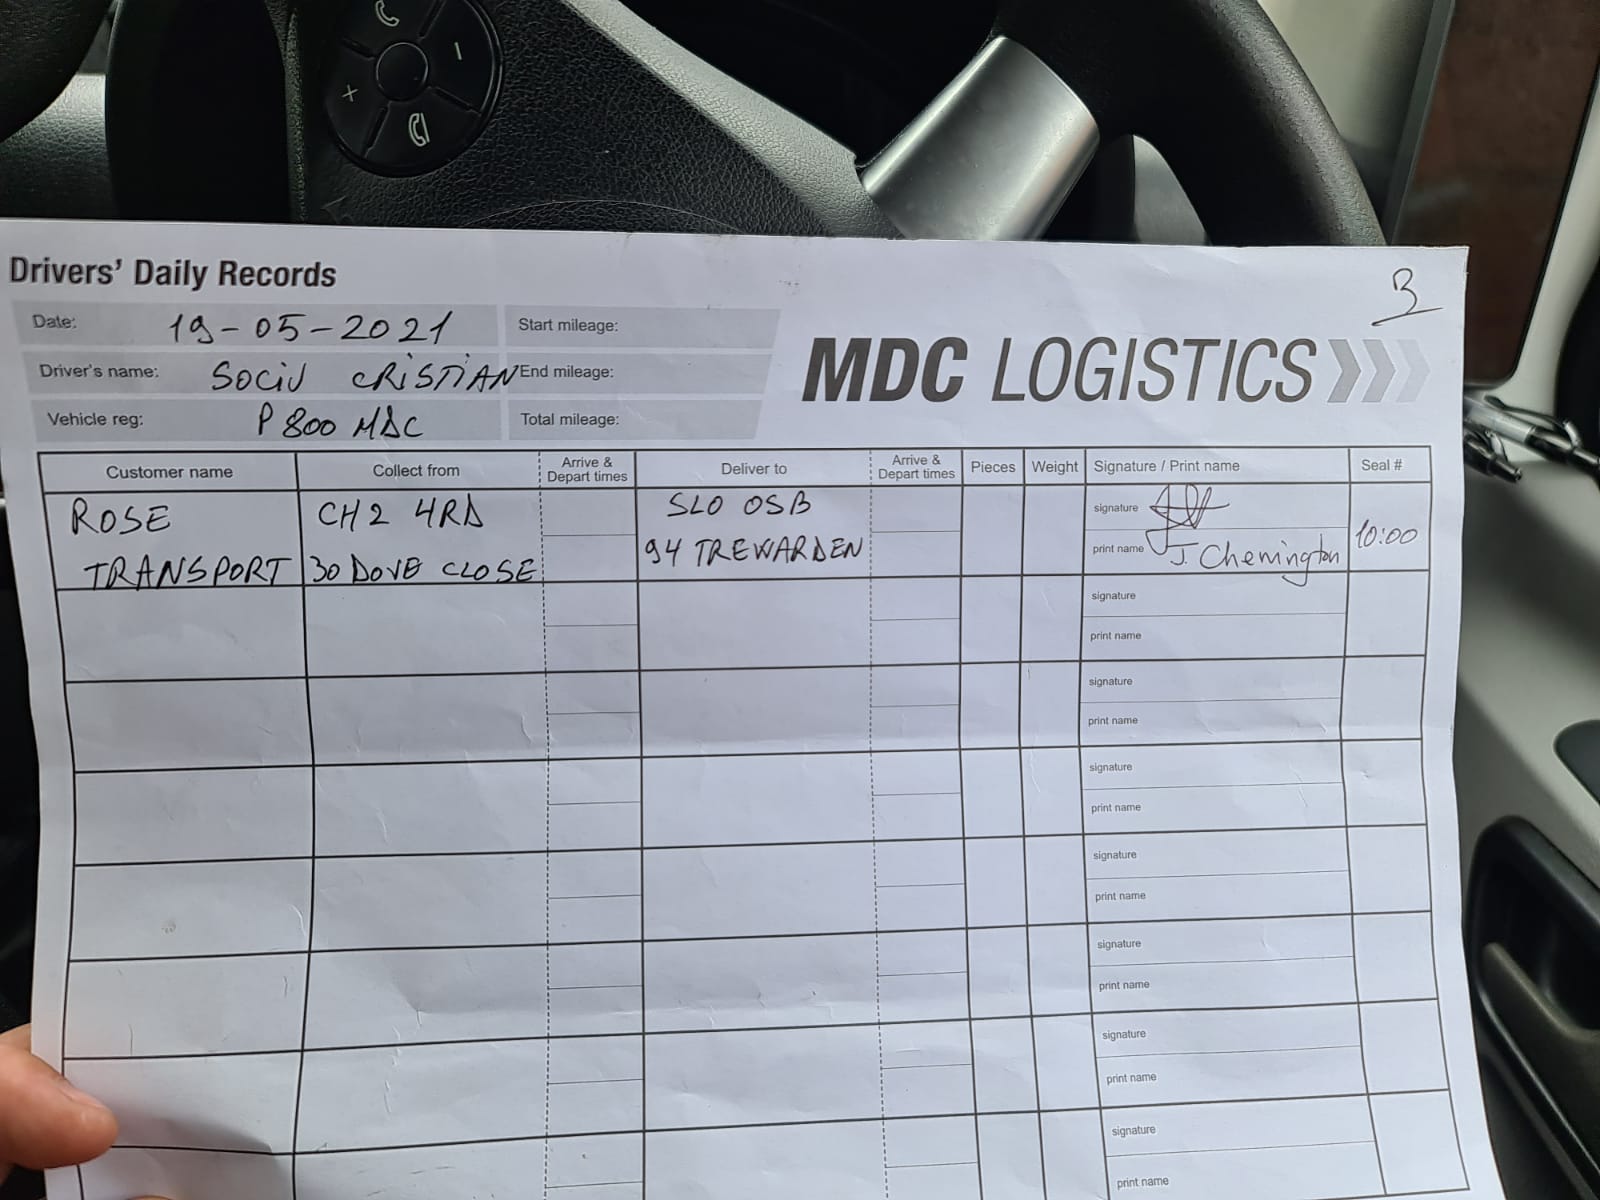 Drivers' Daily Records
3
Date: 19-05-2021 Start mileage:
Driver's name: SOCIU CRISTIAN End mileage:
Vehicle reg: P800 MDC Total mileage:
MDC LOGISTICS
Customer name Collect from Arrive & Depart times Deliver to Arrive & Depart times Pieces Weight Signature / Print name Seal #
ROSE CH2 4RD SL0 0SB signature
TRANSPORT 30 DOVE CLOSE 94 TREWARDEN print name J. Chenington 10:00
signature
print name
signature
print name
signature
print name
signature
print name
signature
print name
signature
print name
signature
print name